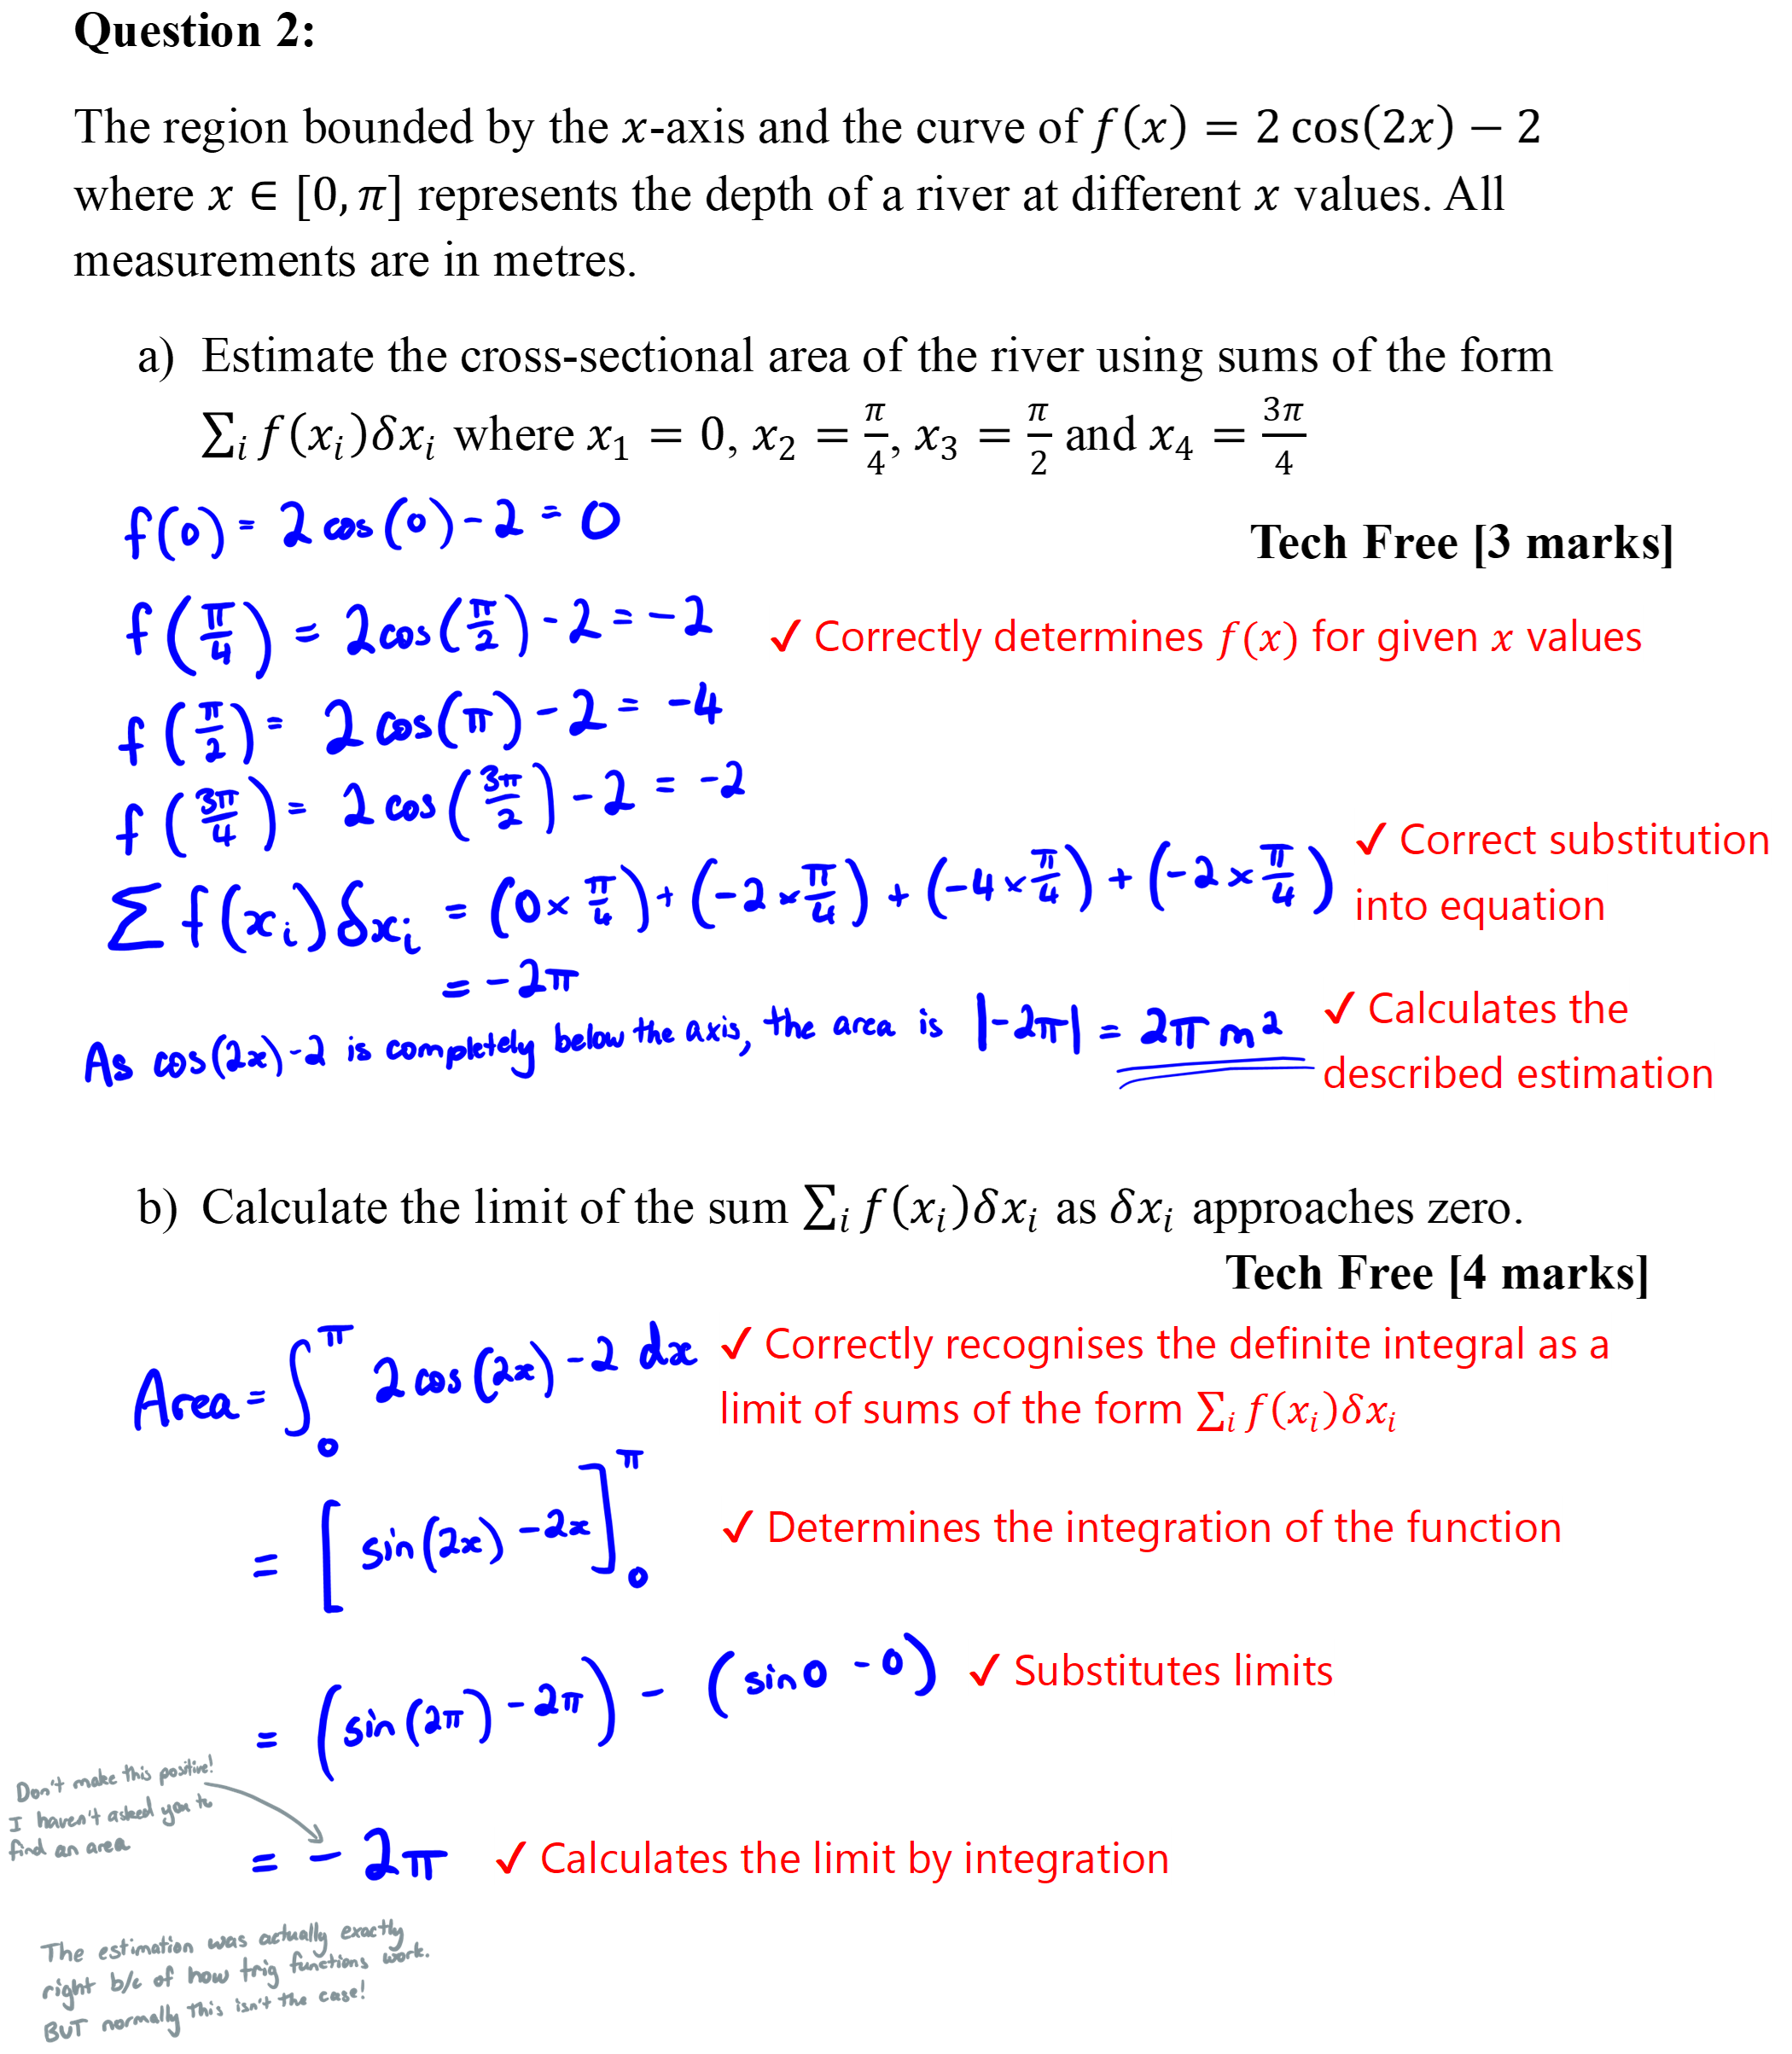 Question 2:
The region bounded by the x-axis and the curve of f(x) = 2 cos(2x) − 2
where x ∈ [0, π] represents the depth of a river at different x values. All
measurements are in metres.
a) Estimate the cross-sectional area of the river using sums of the form
∑ᵢ f(xᵢ)δxᵢ where x₁ = 0, x₂ = π/4, x₃ = π/2 and x₄ = 3π/4
f(0) = 2 cos(0) - 2 = 0
Tech Free [3 marks]
f(π/4) = 2cos(π/2) - 2 = -2
✓ Correctly determines f(x) for given x values
f(π/2) = 2 cos(π) - 2 = -4
f(3π/4) = 2 cos(3π/2) - 2 = -2
∑ f(xᵢ)δxᵢ = (0 × π/4) + (-2 × π/4) + (-4 × π/4) + (-2 × π/4)
✓ Correct substitution
into equation
= -2π
As cos(2x)-2 is completely below the axis, the area is |-2π| = 2π m²
✓ Calculates the
described estimation
b) Calculate the limit of the sum ∑ᵢ f(xᵢ)δxᵢ as δxᵢ approaches zero.
Tech Free [4 marks]
Area = ∫₀^π 2 cos(2x) - 2 dx
✓ Correctly recognises the definite integral as a
limit of sums of the form ∑ᵢ f(xᵢ)δxᵢ
= [sin(2x) - 2x]₀^π
✓ Determines the integration of the function
= (sin(2π) - 2π) - (sin0 - 0)
✓ Substitutes limits
Don't make this positive!
I haven't asked you to
find an area
= - 2π
✓ Calculates the limit by integration
The estimation was actually exactly
right b/c of how trig functions work.
BUT normally this isn't the case!